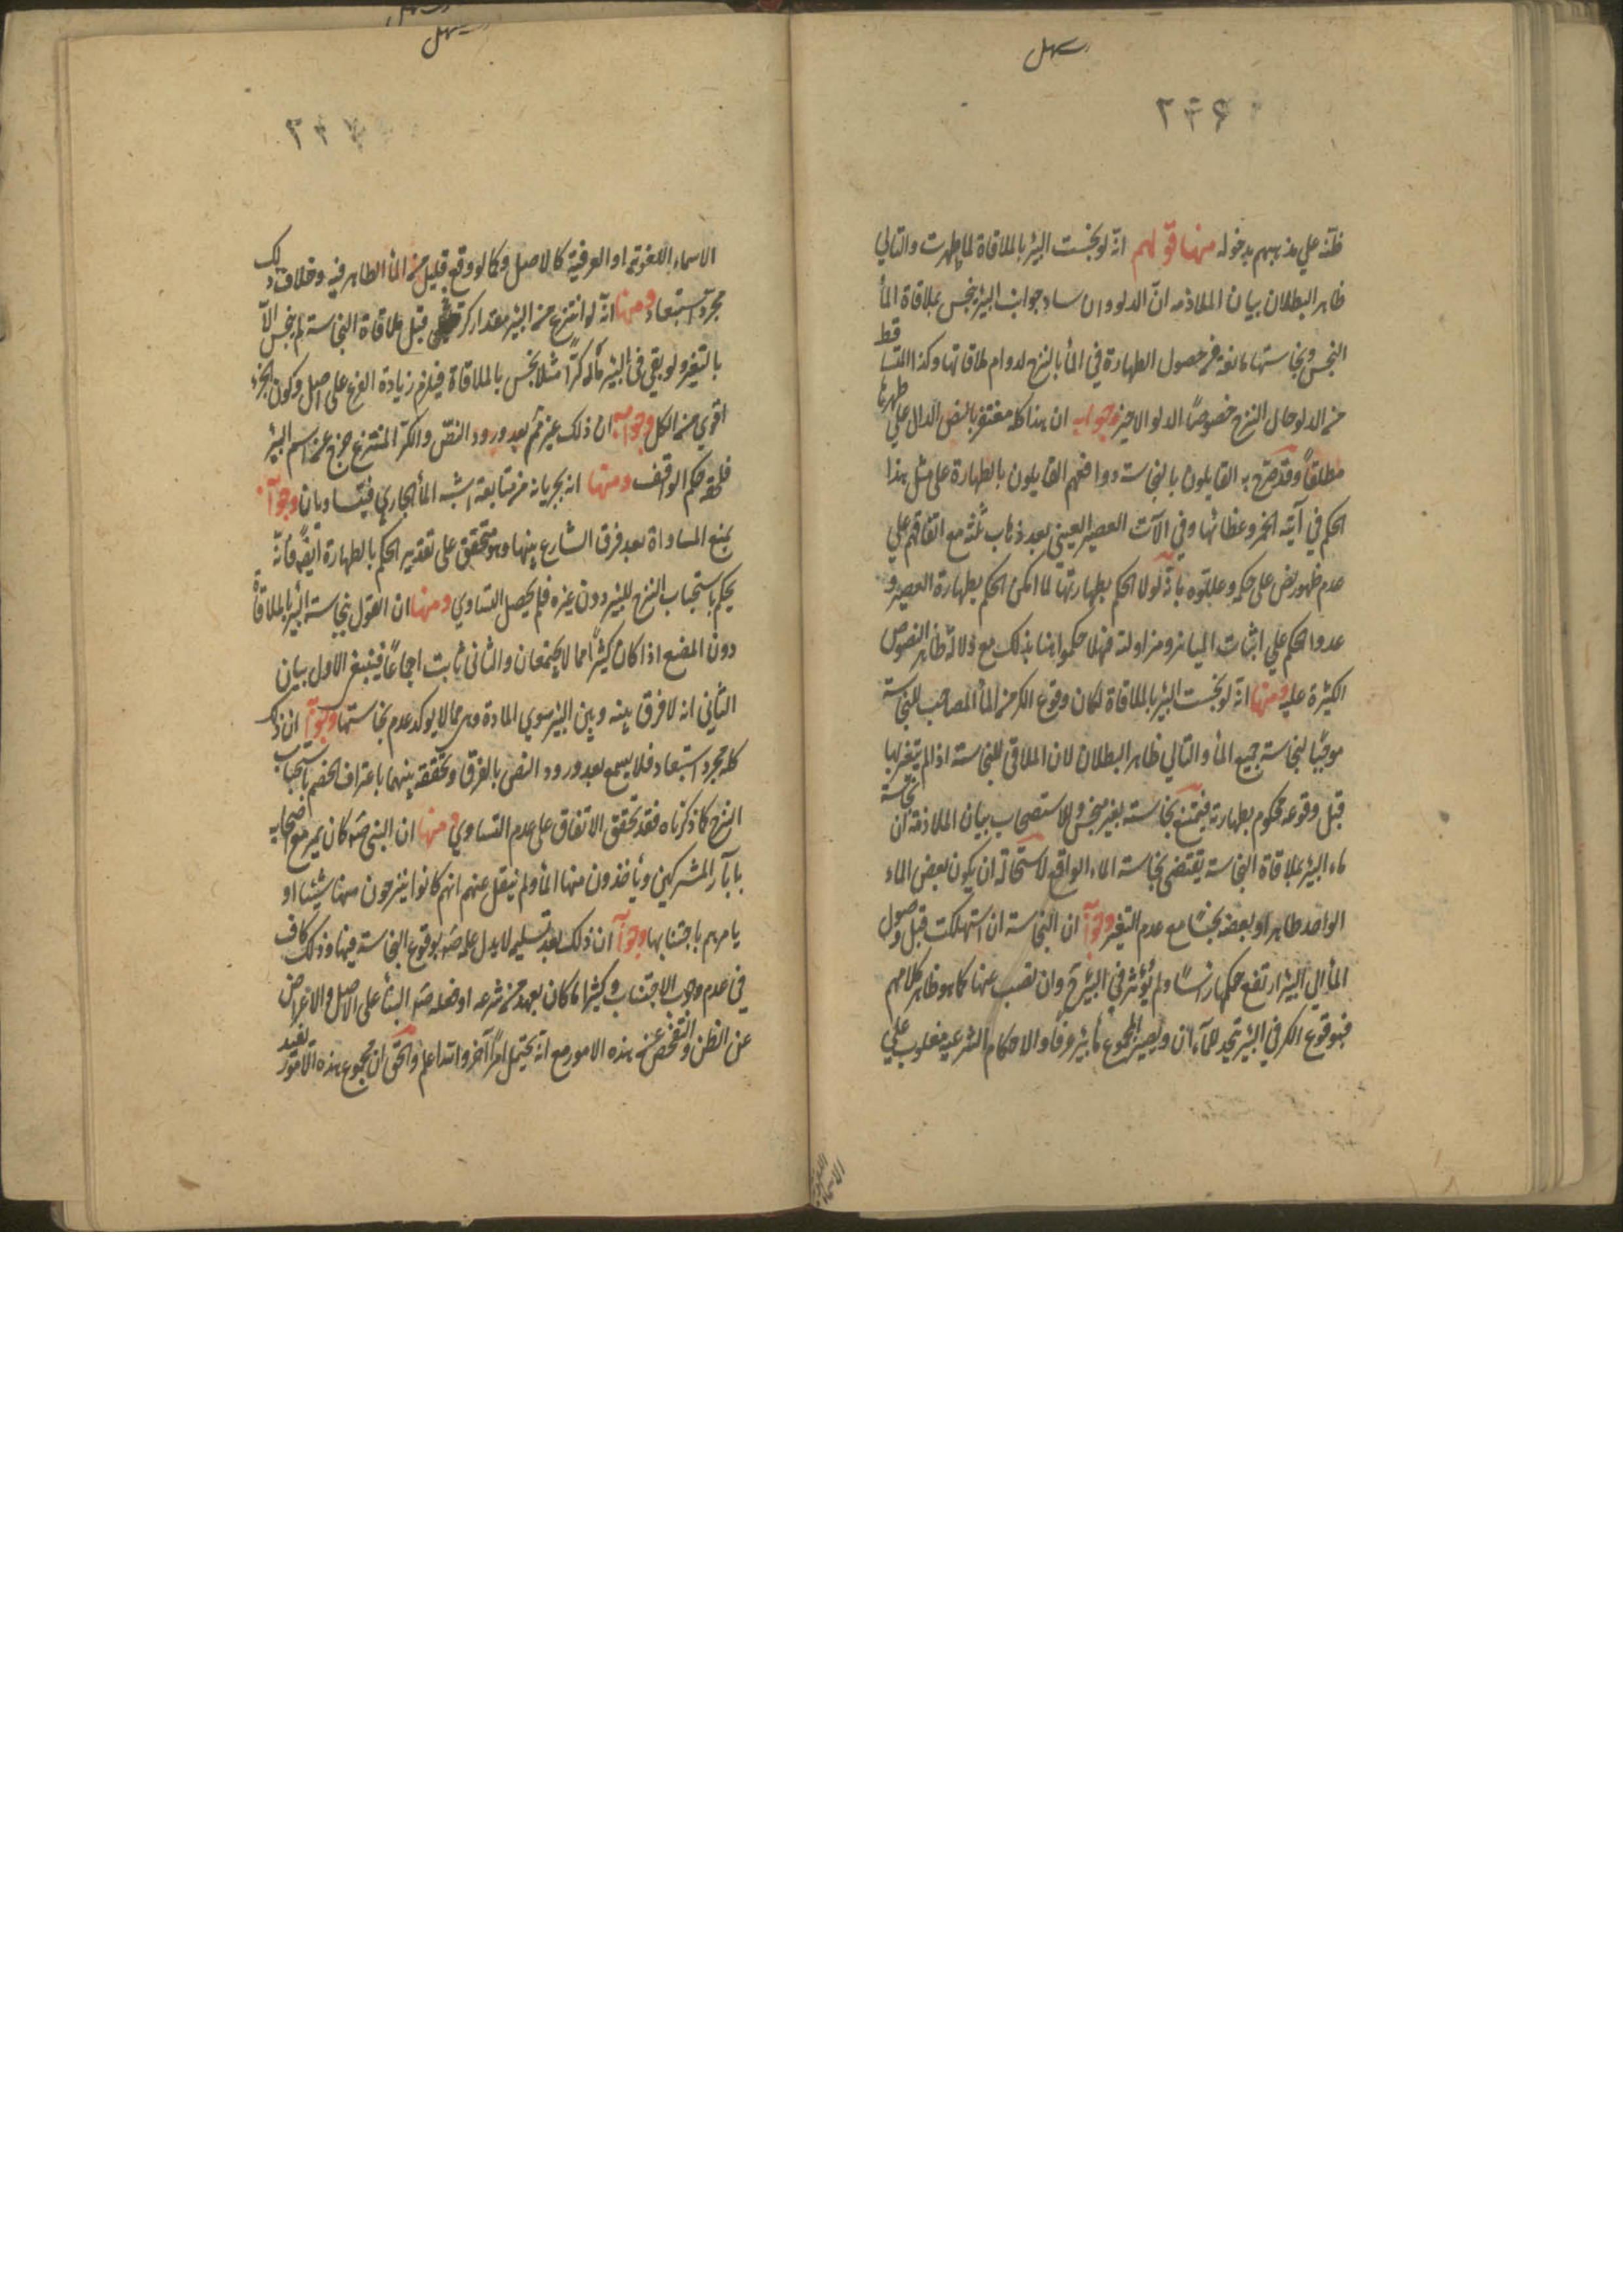 سهل
٢٤٦
ظنّه علي مذهبهم بدخوله منها قولهم انّه لو نجست البئر بالملاقاة لما طهرت والتالي
ظاهر البطلان بيان الملازمه انّ الدلو وان ساد جوانب البئر ينجس بملاقاة المأ
النجس ونجاستها مانعة من حصول الطهارة في المأ بالنزح لدوام ملاقاتها وكذا المتساقط
من الدلو حال النزح خصوصًا الدلو الاخير وجوابه ان هذا كله مغتفر بالنص الدال علي طهرها
مطلقًا وقد صرّح به القايلون بالنجاسة ووافقهم القايلون بالطهارة على مثل هذا
الحكم في آنية الخمر وغطائها وفي الآت العصير العينبي بعد ذهاب ثلثه مع اتفاقهم علي
عدم ظهور نص على حكمه وعللوه بانه لولا الحكم بطهارتها لما امكن الحكم بطهارة العصير و
عدوا الحكم علي اثبات المباشر ومزاولته فهلا حكموا هنا بذلك مع دلالة ظاهر النصوص
الكثيرة عليه ومنها انّه لو نجست البئر بالملاقاة لكان وقوع الكر من المأ المصاحب للنجاسة
موجبًا لنجاسة جميع المأ والتالي ظاهر البطلان لان الملاقي للنجاسة اذا لم يتغير بها
قبل وقوعه محكوم بطهارته فيمتنع نجاسة بغير منجس وللاستصحاب بيان الملازمة ان نجاسة
ماء البئر بملاقاة النجاسة يقتضي نجاسة الماء الواقع لاستحالة ان يكون بعض الماء
الواحد طاهر او بعضه نجسًا مع عدم التغير وجوابه ان النجاسة ان استهلكت قبل وصول
المأ الي البئر ارتفع حكمها راسًا ولم يؤثر في البئر ح وان لقسب عنها كما هو ظاهر كلامهم
فبوقوع الكر في البئر تيحد المآءان ويصير المجموع مأ بئر عرفًا والاحكام الشرعيه مغلوب علي
الاسماء اللغويه
سهل
٢٤٧
الاسماء اللغوية او العرفية كالاصل وكما لو وقع قليل من المأ الطاهر فيه وخلاف ذلك
مجرّد استبعاد ومنها انّه لو انتزع من البئر مقدار كر قبل ملاقاة النجاسة لم ينجس الاّ
بالتغير ولو بقي في البئر مأه كرًّا مثلا نجس بالملاقاة فيلزم زيادة الفرع على اصل وكون الجزء
اقوي من الكل وجوابه ان ذلك غير تم بعد ورود النصّ والكرّ المنتزع خرج عن اسم البئر
فلحقه حكم الواقف ومنها انه بجريانه من منابعه اشبه المأ الجاري فيتساويان وجوابه
بمنع المساواة بعد فرق الشارع بينها وهو متحقق على تقدير الحكم بالطهارة ايضًا فانّه
يحكم باستحباب النزح للبئر دون غيره فلم يحصل التساوي ومنها ان القول بنجاسة البئر بالملاقاة
دون المصنع اذا كان كثيرًا مما لا يجتمعان والثاني ثابت اجماعًا فينتفي الاول بيان
الثاني انه لا فرق بينه وبين البئر سوي المادة وهي مما لا يوكد عدم نجاستها وجوابه ان ذلك
كله مجرد استبعاد فلا يسمع بعد ورود النص بالفرق وتحققه بينهما باعتراف الخصم باستحباب
النزح كما ذكرناه فقد تحقق الاتفاق على عدم التساوي ومنها ان النبي ص كان يمر مع اصحابه
بابآر المشركين ويأخذون منها المأ ولم ينقل عنهم انهم كانوا ينزحون منها شيئا او
يامرهم باجتنابها وجوابه ان ذلك بعد تسليمه لا يدل علمه ص بوقوع النجاسة فيها وذلك كاف
في عدم وجوب الاجتناب وكثيرا ما كان يعهد من شرعه او فعله ص البنأ على الاصل والاعراض
عن الظن والتفحص عن هذه الامور مع انه يحتمل امرًا آخر والله اعلم والحق ان مجموع هذه الامور لفيد